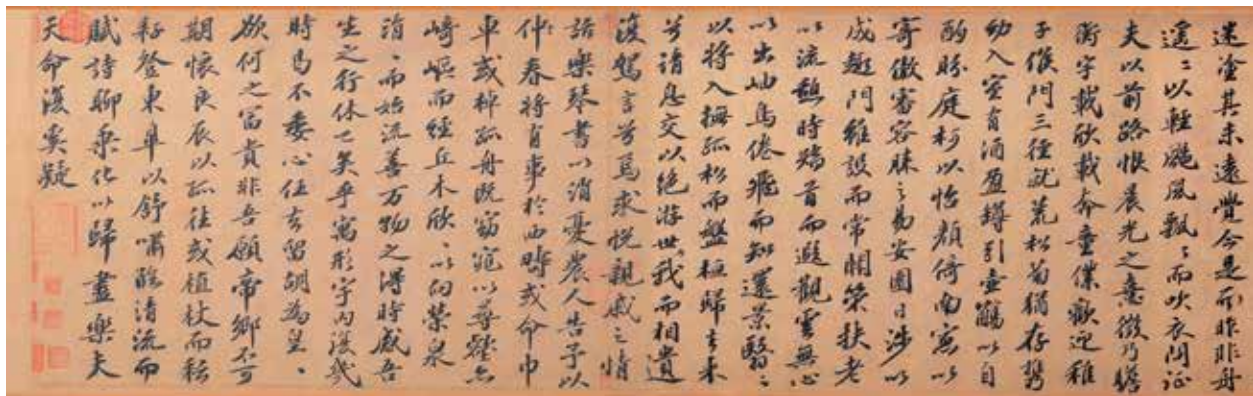 迷塗其未遠覺今是而昨非舟
遙〻以輕颺風飄〻而吹衣問征
夫以前路恨晨光之熹微乃瞻
衡宇載欣載奔童僕歡迎稚
子候門三徑就荒松菊猶存攜
幼入室有酒盈罇引壺觴以自
酌眄庭柯以怡顏倚南窓以
寄傲審容膝之易安園日涉以
成趣門雖設而常關策扶老
以流憩時矯首而遐觀雲無心
以出岫鳥倦飛而知還景翳〻
以將入撫孤松而盤桓歸去來
兮請息交以絕游世我而相遺
復駕言兮焉求悅親戚之情
話樂琴書以消憂農人告予以
仲春將有事於西疇或命巾
車或棹孤舟既窈窕以尋壑亦
崎嶇而經丘木欣〻以向榮泉
涓〻而始流善万物之得時感吾
生之行休已矣乎寓形宇內復幾
時曷不委心任去留胡為皇〻
欲何之富貴非吾願帝鄉不可
期懷良辰以孤往或植杖而耘
耔登東皋以舒嘯臨清流而
賦詩聊乘化以歸盡樂夫
天命復奚疑